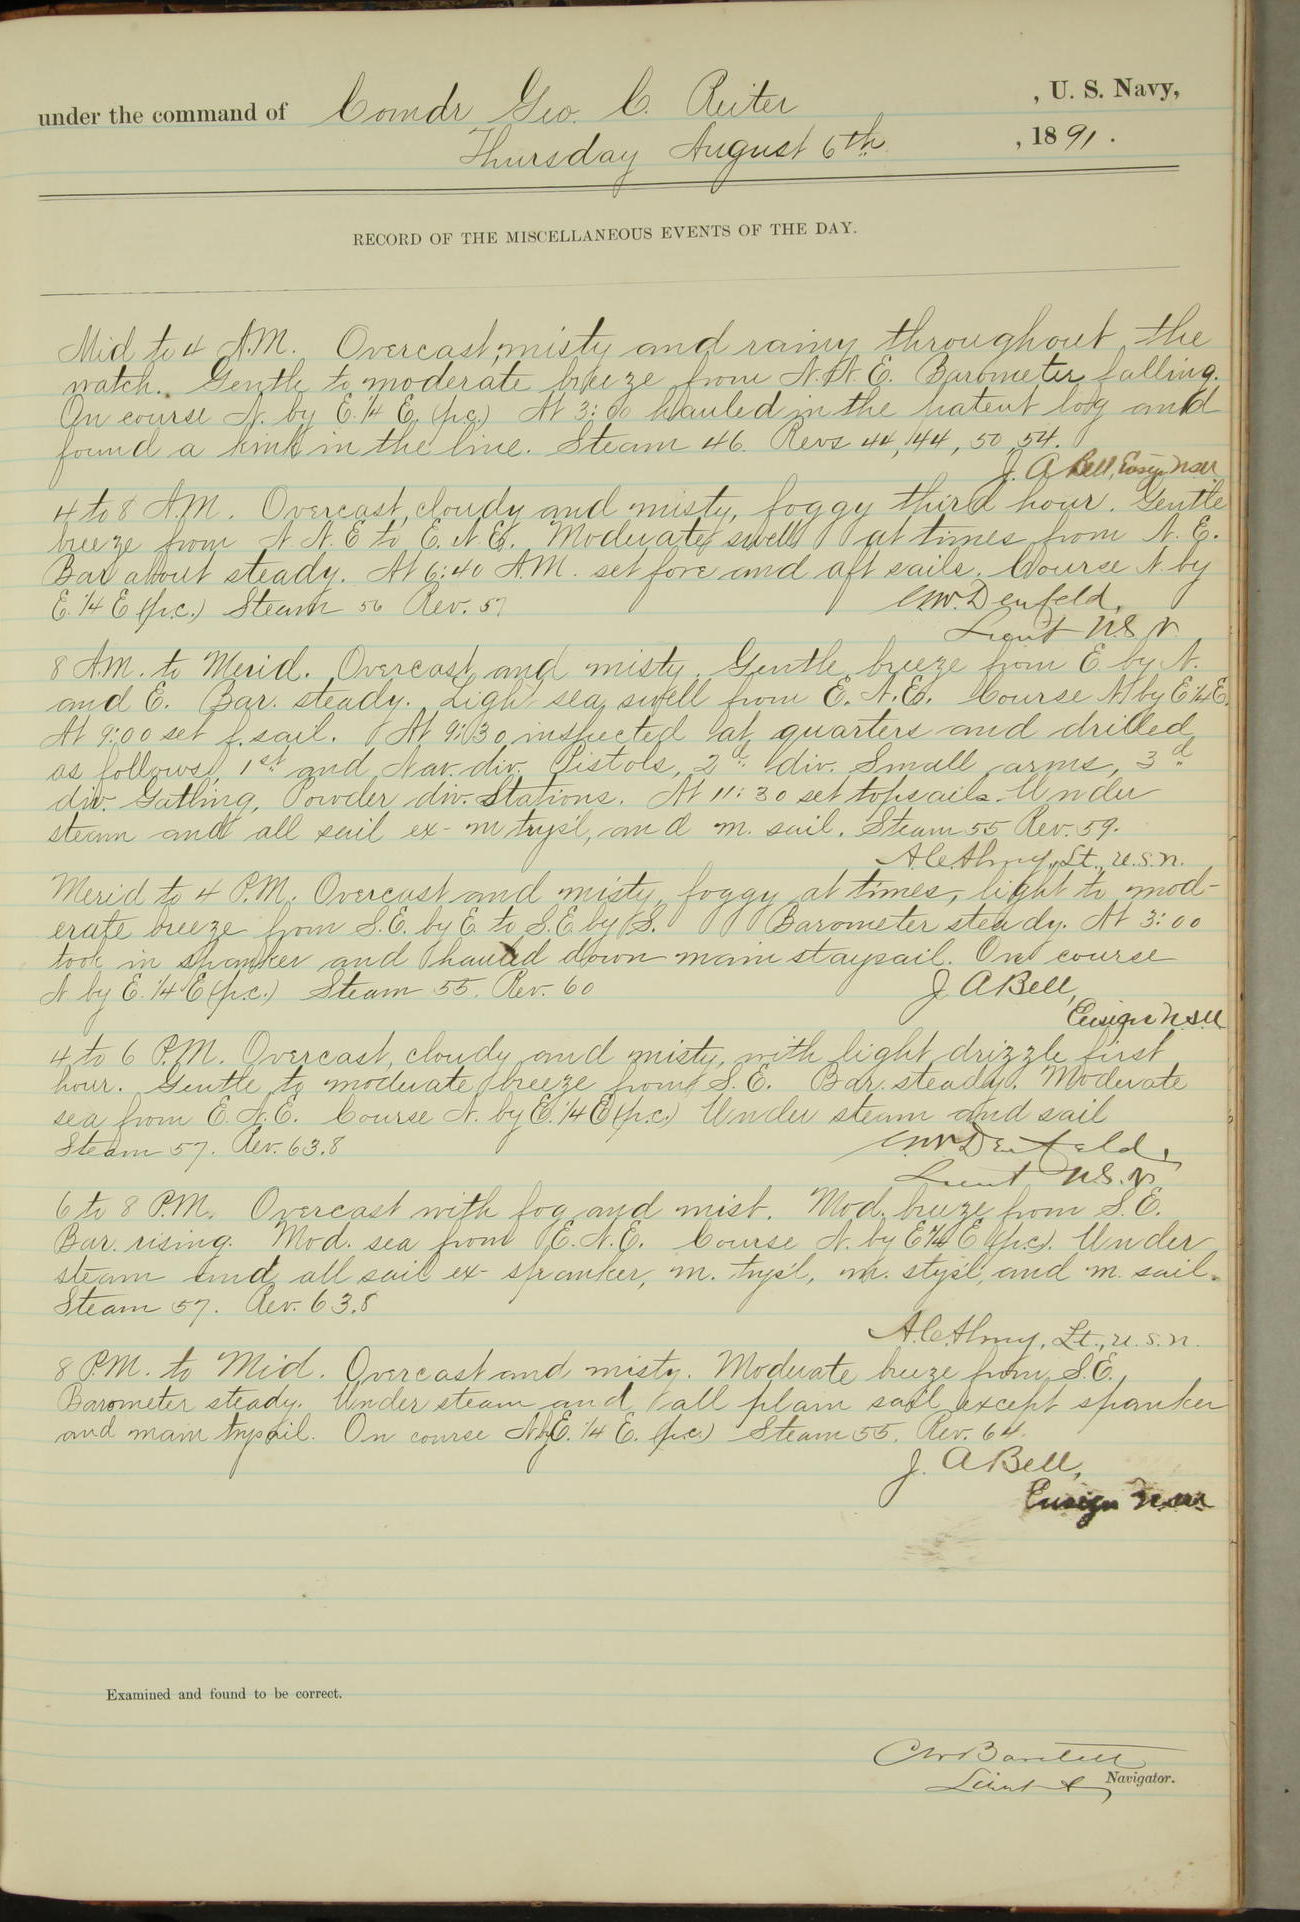 under the command of Comdr Geo. C. Reiter , U. S. Navy,
Thursday August 6th , 1891 .
RECORD OF THE MISCELLANEOUS EVENTS OF THE DAY.
Mid to 4 A.M. Overcast, misty and rainy throughout the
watch. Gentle to moderate breeze from N.N.E. Barometer falling.
On course N. by E. 1/4 E. (p.c.) At 3:00 hauled in the patent log and
found a kink in the line. Steam 46. Revs 44, 44, 50, 54.
J. A Bell, Ensign USN
4 to 8 A.M. Overcast, cloudy and misty, foggy third hour. Gentle
breeze from N.N.E to E.N.E. Moderate swell at times from N.E.
Bar about steady. At 6:40 A.M. set fore and aft sails. Course N. by
E. 1/4 E (p.c.) Steam 56 Rev. 57
Denfeld,
Lieut U.S.N.
8 A.M. to Merid. Overcast and misty. Gentle breeze from E. by N.
and E. Bar. steady. Light sea swell from E.N.E. Course N by E 1/4 E.
At 9:00 set f. sail. At 9:30 inspected at quarters and drilled
as follows, 1st and Nav. div. Pistols, 2d div. Small arms, 3d
div. Gatling, Powder div. Stations. At 11:30 set topsails. Under
steam and all sail ex- m trys'l, and m. sail. Steam 55 Rev. 59.
A.C. Almy, Lt., U.S.N.
Merid to 4 P.M. Overcast and misty foggy at times, light to mod-
erate breeze from S.E. by E. to S.E by S. Barometer steady. At 3:00
took in spanker and hauled down main staysail. On course
N by E. 1/4 E (p.c.) Steam 55. Rev. 60
J. A Bell,
Ensign USN
4 to 6 P.M. Overcast, cloudy and misty, with light drizzle first
hour. Gentle to moderate breeze from S.E. Bar. steady. Moderate
sea from E.N.E. Course N. by E. 1/4 E (p.c.) Under steam and sail
Steam 57. Rev. 63.8
Denfeld,
Lieut U.S.N.
6 to 8 P.M. Overcast with fog and mist. Mod. breeze from S.E.
Bar. rising. Mod. sea from E.N.E. Course N. by E 1/4 E (p.c). Under
steam and all sail ex- spanker, m. trys'l, m. stys'l, and m. sail.
Steam 57. Rev. 63.8
A.C. Almy, Lt., U.S.N.
8 P.M. to Mid. Overcast and misty. Moderate breeze from S.E.
Barometer steady. Under steam and all plain sail except spanker
and main trysail. On course N. by E. 1/4 E. (p.c.) Steam 55. Rev. 64.
J. A Bell,
Ensign USN
Examined and found to be correct.
C W Bartlett
Lieut & Navigator.